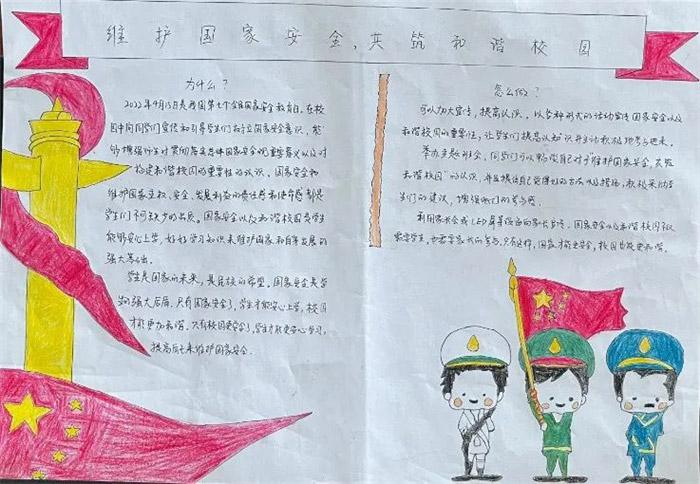 维护国家安全,共筑和谐校园
为什么?
2022年4月15日是我国第七个全民国家安全教育日,在校
园中向同学们宣传和引导学生们树立国家安全意识,能
够增强师生对贯彻落实总体国家安全观重要意义以及对
构建和谐校园的重要性的认识,国家安全和
维护国家主权、安全、发展利益的责任感和使命感都是
学生们不可缺少的品质,国家安全以及和谐校园是学生
能够安心上学,好好学习知识来维护国家和自身发展的
强大
学生是国家的未来,是民族的希望,国家安全是学
生的强大后盾.只有国家安全了,学生才能安心上学,校园
才能更加和谐.只有校园更安全了,学生才能更专心学习,
提高自己来维护国家安全.
怎么做?
可以加大宣传,提高认识,以各种形式的活动宣传国家安全以及
和谐校园的重要性,让学生们提高认知识并主动积极地参与进来.
举办主题班会,同学们可以畅谈自己对于"维护国家安全,共筑
和谐校园"的认识,并且提出自己觉得好的方法以及措施,积极采纳
学生们的建议,增强他们的参与感.
利用家长会或LED屏等做面向家长宣传,国家安全以及和谐校园不仅
需要学生,也需要家长的参与,只有这样,国家才能更安全,校园也能更和谐.